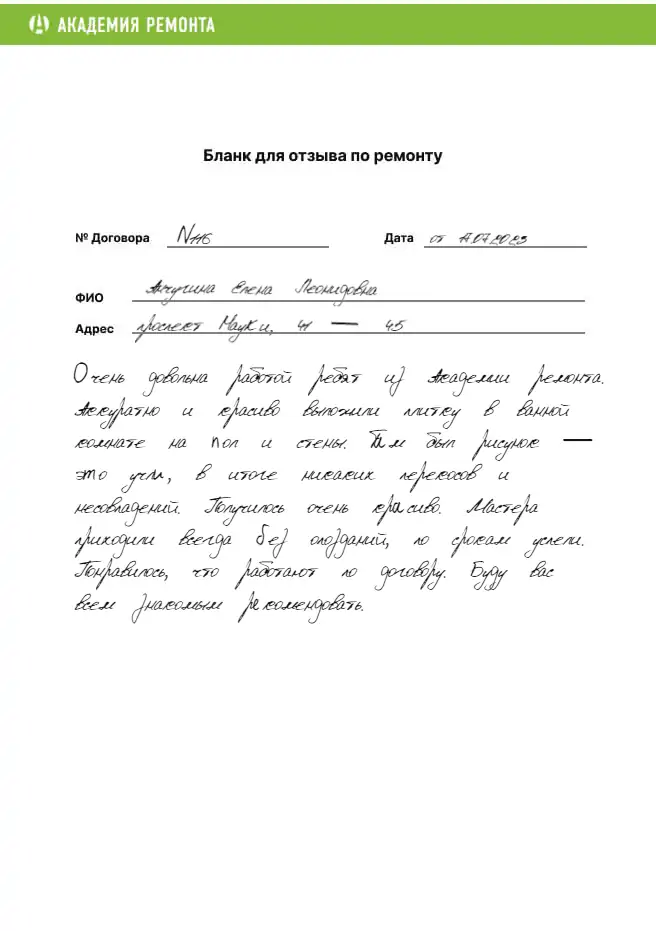 АКАДЕМИЯ РЕМОНТА
Бланк для отзыва по ремонту
№ Договора N116 Дата от 17.07.2023
ФИО Анчугина Елена Леонидовна
Адрес проспект Науки, 41 — 45
Очень довольна работой ребят из Академии ремонта.
Аккуратно и красиво выложили плитку в ванной
комнате на пол и стены. Там был рисунок —
это учли, в итоге никаких перекосов и
несовпадений. Получилось очень красиво. Мастера
приходили всегда без опозданий, по срокам успели.
Понравилось, что работают по договору. Буду вас
всем знакомым рекомендовать.